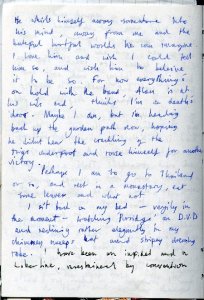 He whirls himself away somewhere into
his mind, away from me and the
hateful hurtful worlds he can recognise
I love him and wish I could tell
him so, and wish him to believe
it to be so. For now everything's
on hold with the band. Alan is at
his wits end, thinks I'm on death's
door. Maybe I am, but I'm heading
back up the garden path now, hoping
he didnt hear the crackling of the
twigs underfoot and rouse himself for another
victory.
Perhaps I am to go to Thailand
or so, and rest in a monastery, eat
some leaves and what not.
I'm back on my bed – verily in
the moment – watching Porridge on D.V.D
and reclining rather elegantly in my
chimney sweeps hat and stripey dressing
robe. I have been an infidel and a
libertine, unrestrained by convention